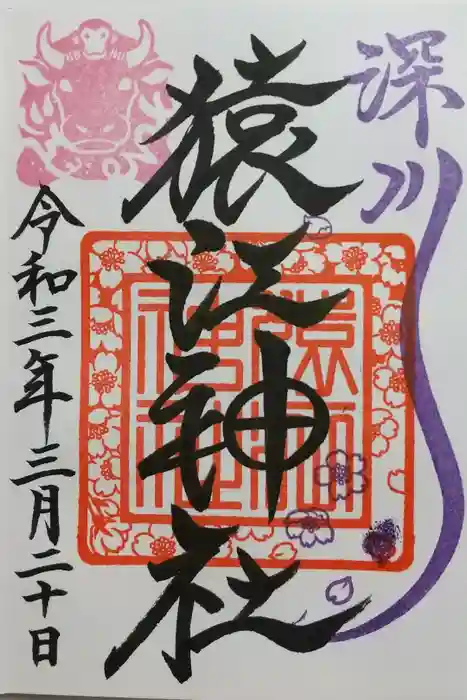 深川
猿江神社
猿江
神社
令和三年三月二十日